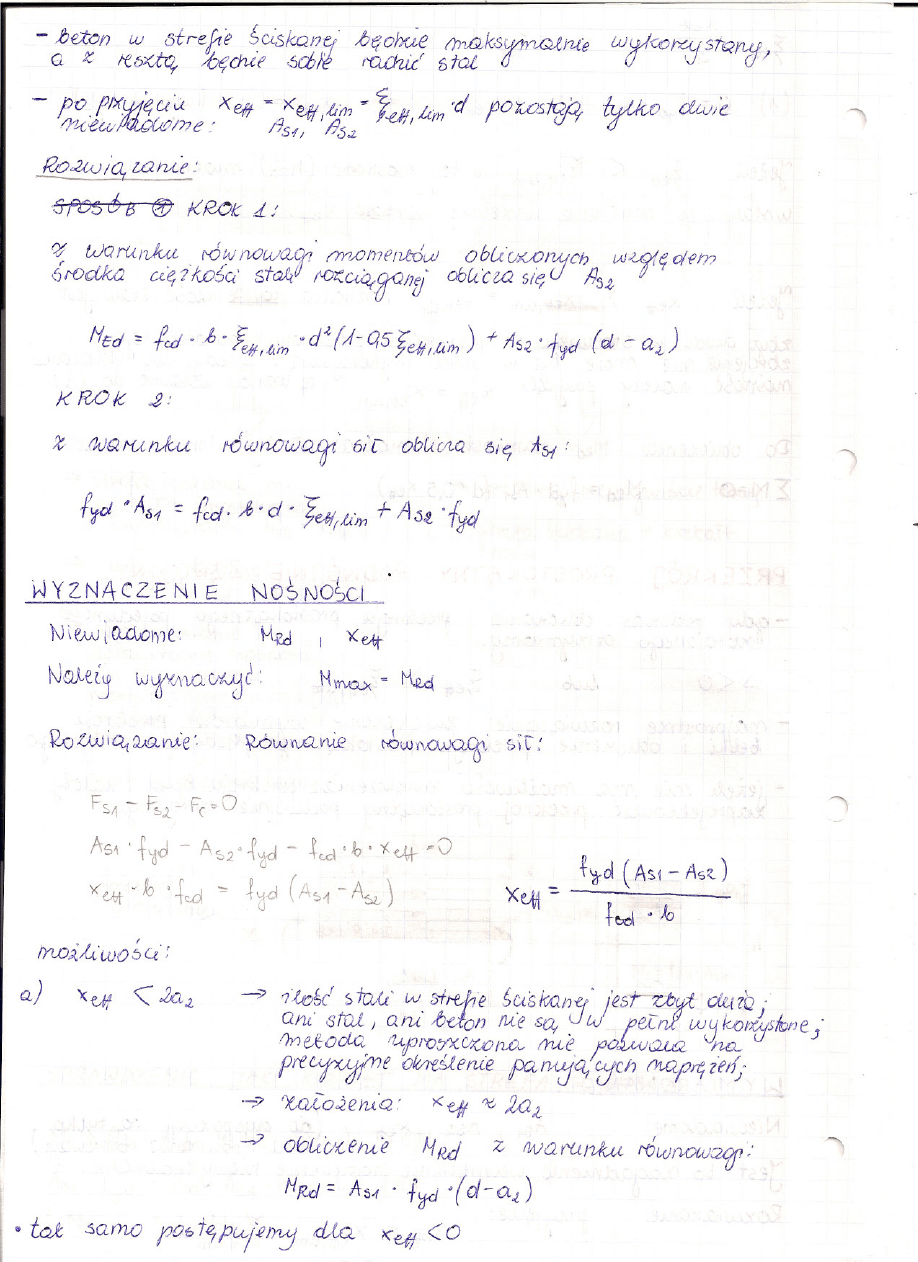 - beton w strefie ściskanej będzie maksymalnie wykorzystany,
a z resztą będzie sobie radzić stal
- po przyjęciu x_eff = x_eff,lim = ξ_eff,lim · d pozostają tylko dwie
niewiadome: A_S1, A_S2
Rozwiązanie:
SPOSÓB ① KROK 1:
z warunku równowagi momentów obliczonych względem
środka ciężkości stali rozciąganej oblicza się A_S2
M_Ed = f_cd · b · ξ_eff,lim · d² (1-0,5 ξ_eff,lim) + A_S2 · f_yd (d - a_2)
KROK 2:
z warunku równowagi sił oblicza się A_S1:
f_yd · A_S1 = f_cd · b · d · ξ_eff,lim + A_S2 · f_yd
WYZNACZENIE NOŚNOŚCI
Niewiadome: M_Rd , x_eff
Należy wyznaczyć: M_max = M_Rd
Rozwiązanie: Równanie równowagi sił:
F_S1 - F_S2 - F_C = 0
A_S1 · f_yd - A_S2 · f_yd - f_cd · b · x_eff = 0
x_eff · b · f_cd = f_yd (A_S1 - A_S2)
x_eff = f_yd (A_S1 - A_S2) / f_cd · b
możliwości:
a) x_eff < 2a_2 → ilość stali w strefie ściskanej jest zbyt duża;
ani stal, ani beton nie są w pełni wykorzystane;
metoda uproszczona nie pozwala na
precyzyjne określenie panujących naprężeń;
→ założenia: x_eff ≈ 2a_2
→ obliczenie M_Rd z warunku równowagi:
M_Rd = A_S1 · f_yd · (d - a_2)
• tak samo postępujemy dla x_eff < 0